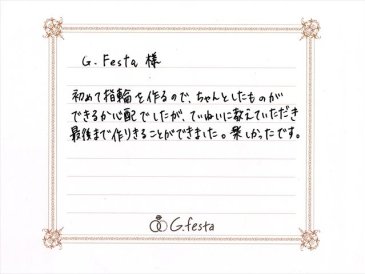 G.Festa 様
初めて指輪を作るので、ちゃんとしたものが
できるか心配でしたが、ていねいに教えていただき
最後まで作りきることができました。楽しかったです。
G.festa